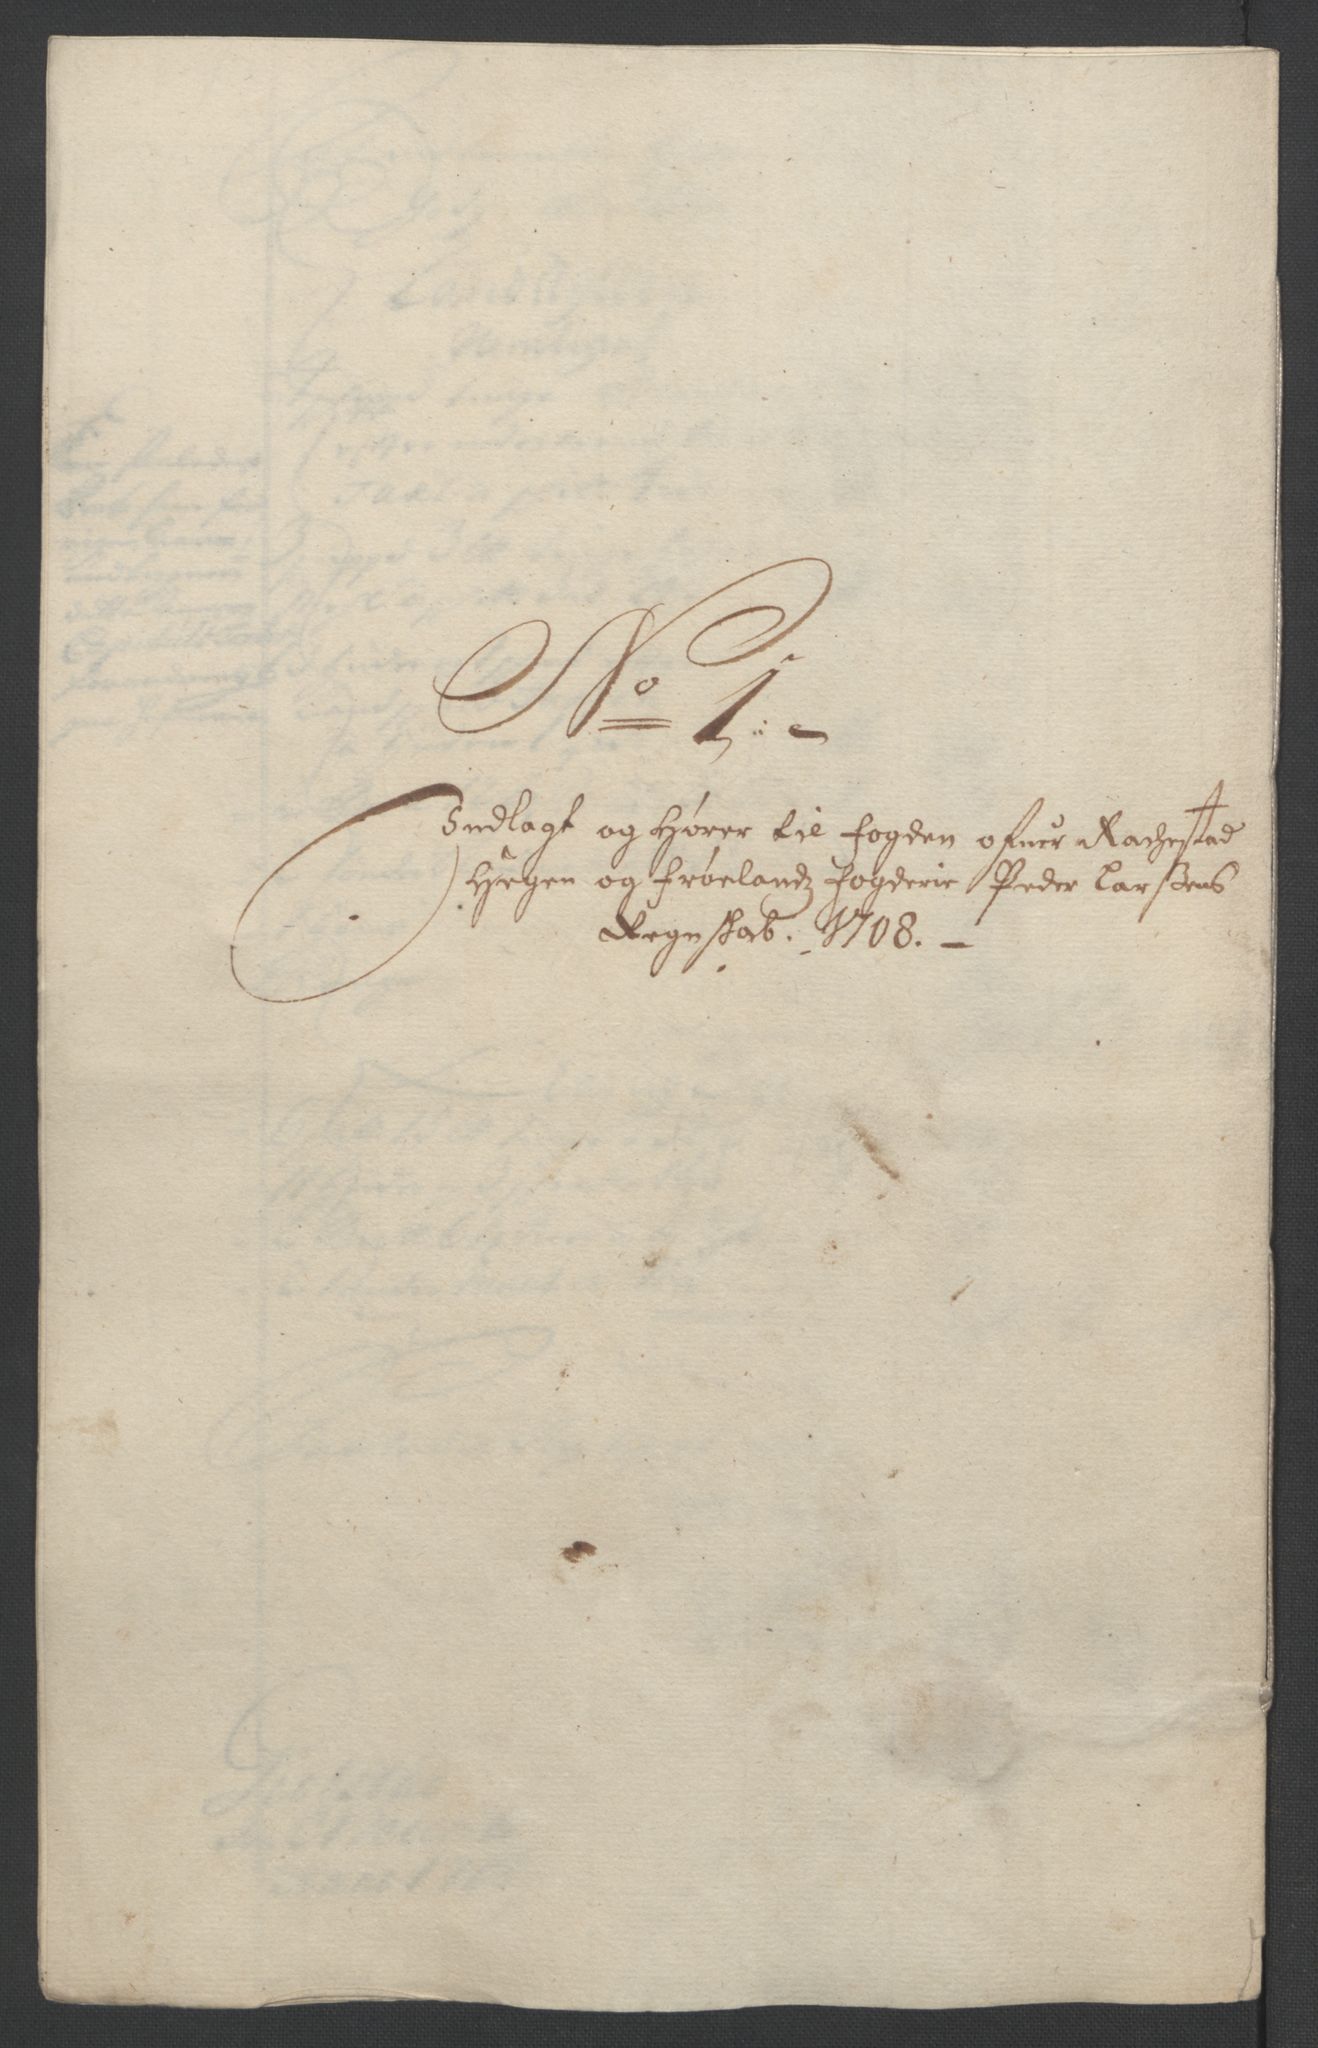 No 1.
Indlagt og Hører til fogden ofuer Rachestad
Heggen og frøelandz fogderie Peder Larssens
Regnskab. 1708.